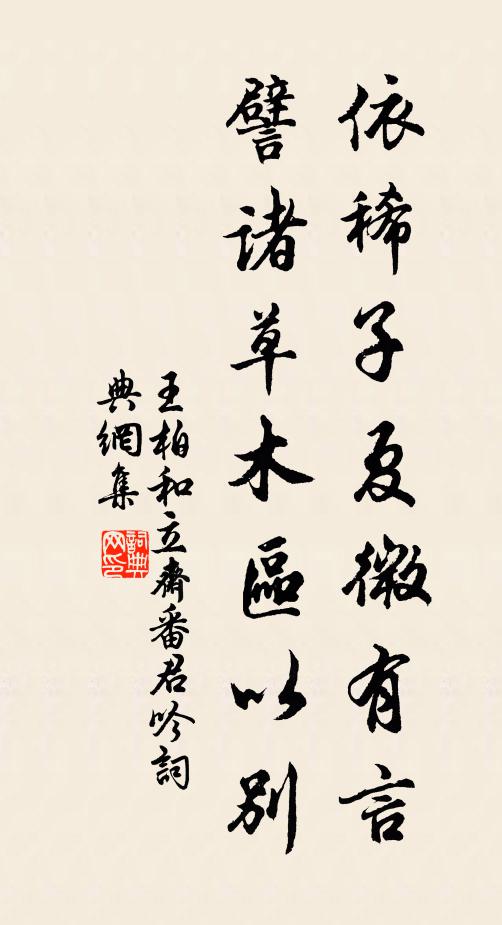 依稀子夏微有言
譬諸草木區以別
王柏和立齋番君吟詞
典網集
詞典
网印